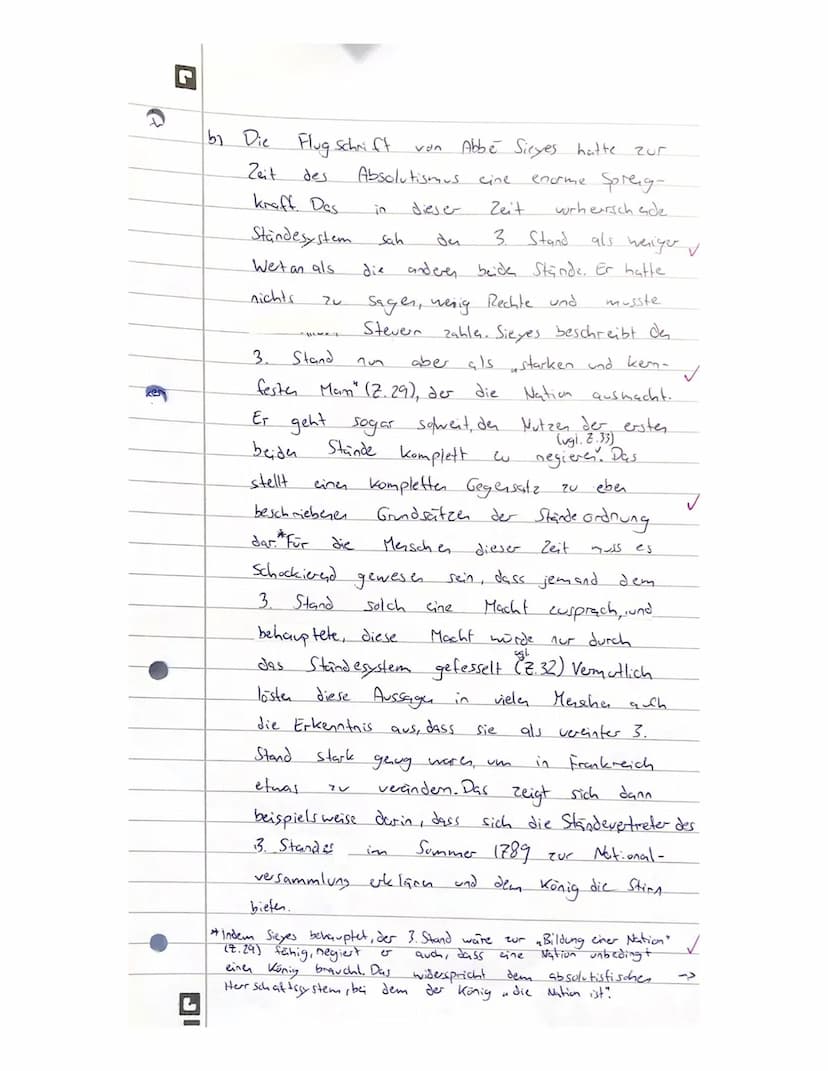 b) Die Flugschrift von Abbé Sieyes hatte zur
Zeit des Absolutismus eine enorme Spreng-
kraft. Das in dieser Zeit vorherrschende
Ständesystem sah den 3. Stand als weniger
Wert an als die anderen beiden Stände. Er hatte
nichts zu sagen, wenig Rechte und musste
Steuern zahlen. Sieyes beschreibt den
3. Stand nun aber als „starken und kern-
festen Mann" (Z. 29), der die Nation ausmacht.
Er geht sogar soweit, den Nutzen der ersten
beiden Stände komplett zu negieren (vgl. Z. 33). Das
stellt einen kompletten Gegensatz zu eben
beschriebenen Grundsätzen der Ständeordnung
dar.* Für die Menschen dieser Zeit muss es
Schockierend gewesen sein, dass jemand dem
3. Stand solch eine Macht zusprach, und
behauptete, diese Macht würde nur durch
das Ständesystem gefesselt (vgl. Z. 32) Vermutlich
lösten diese Aussagen in vielen Menschen auch
die Erkenntnis aus, dass sie als vereinter 3.
Stand stark genug waren, um in Frankreich
etwas zu verändern. Das zeigt sich dann
beispielsweise darin, dass sich die Ständevertreter des
3. Standes im Sommer 1789 zur National-
versammlung erklären und dem König die Stirn
bieten.
* Indem Sieyes behauptet, der 3. Stand wäre zur „Bildung einer Nation"
(Z. 29) fähig, negiert er auch, dass eine Nation unbedingt
einen König braucht. Das widerspricht dem absolutistischen →
Herrschaftssystem, bei dem der König „die Nation ist".